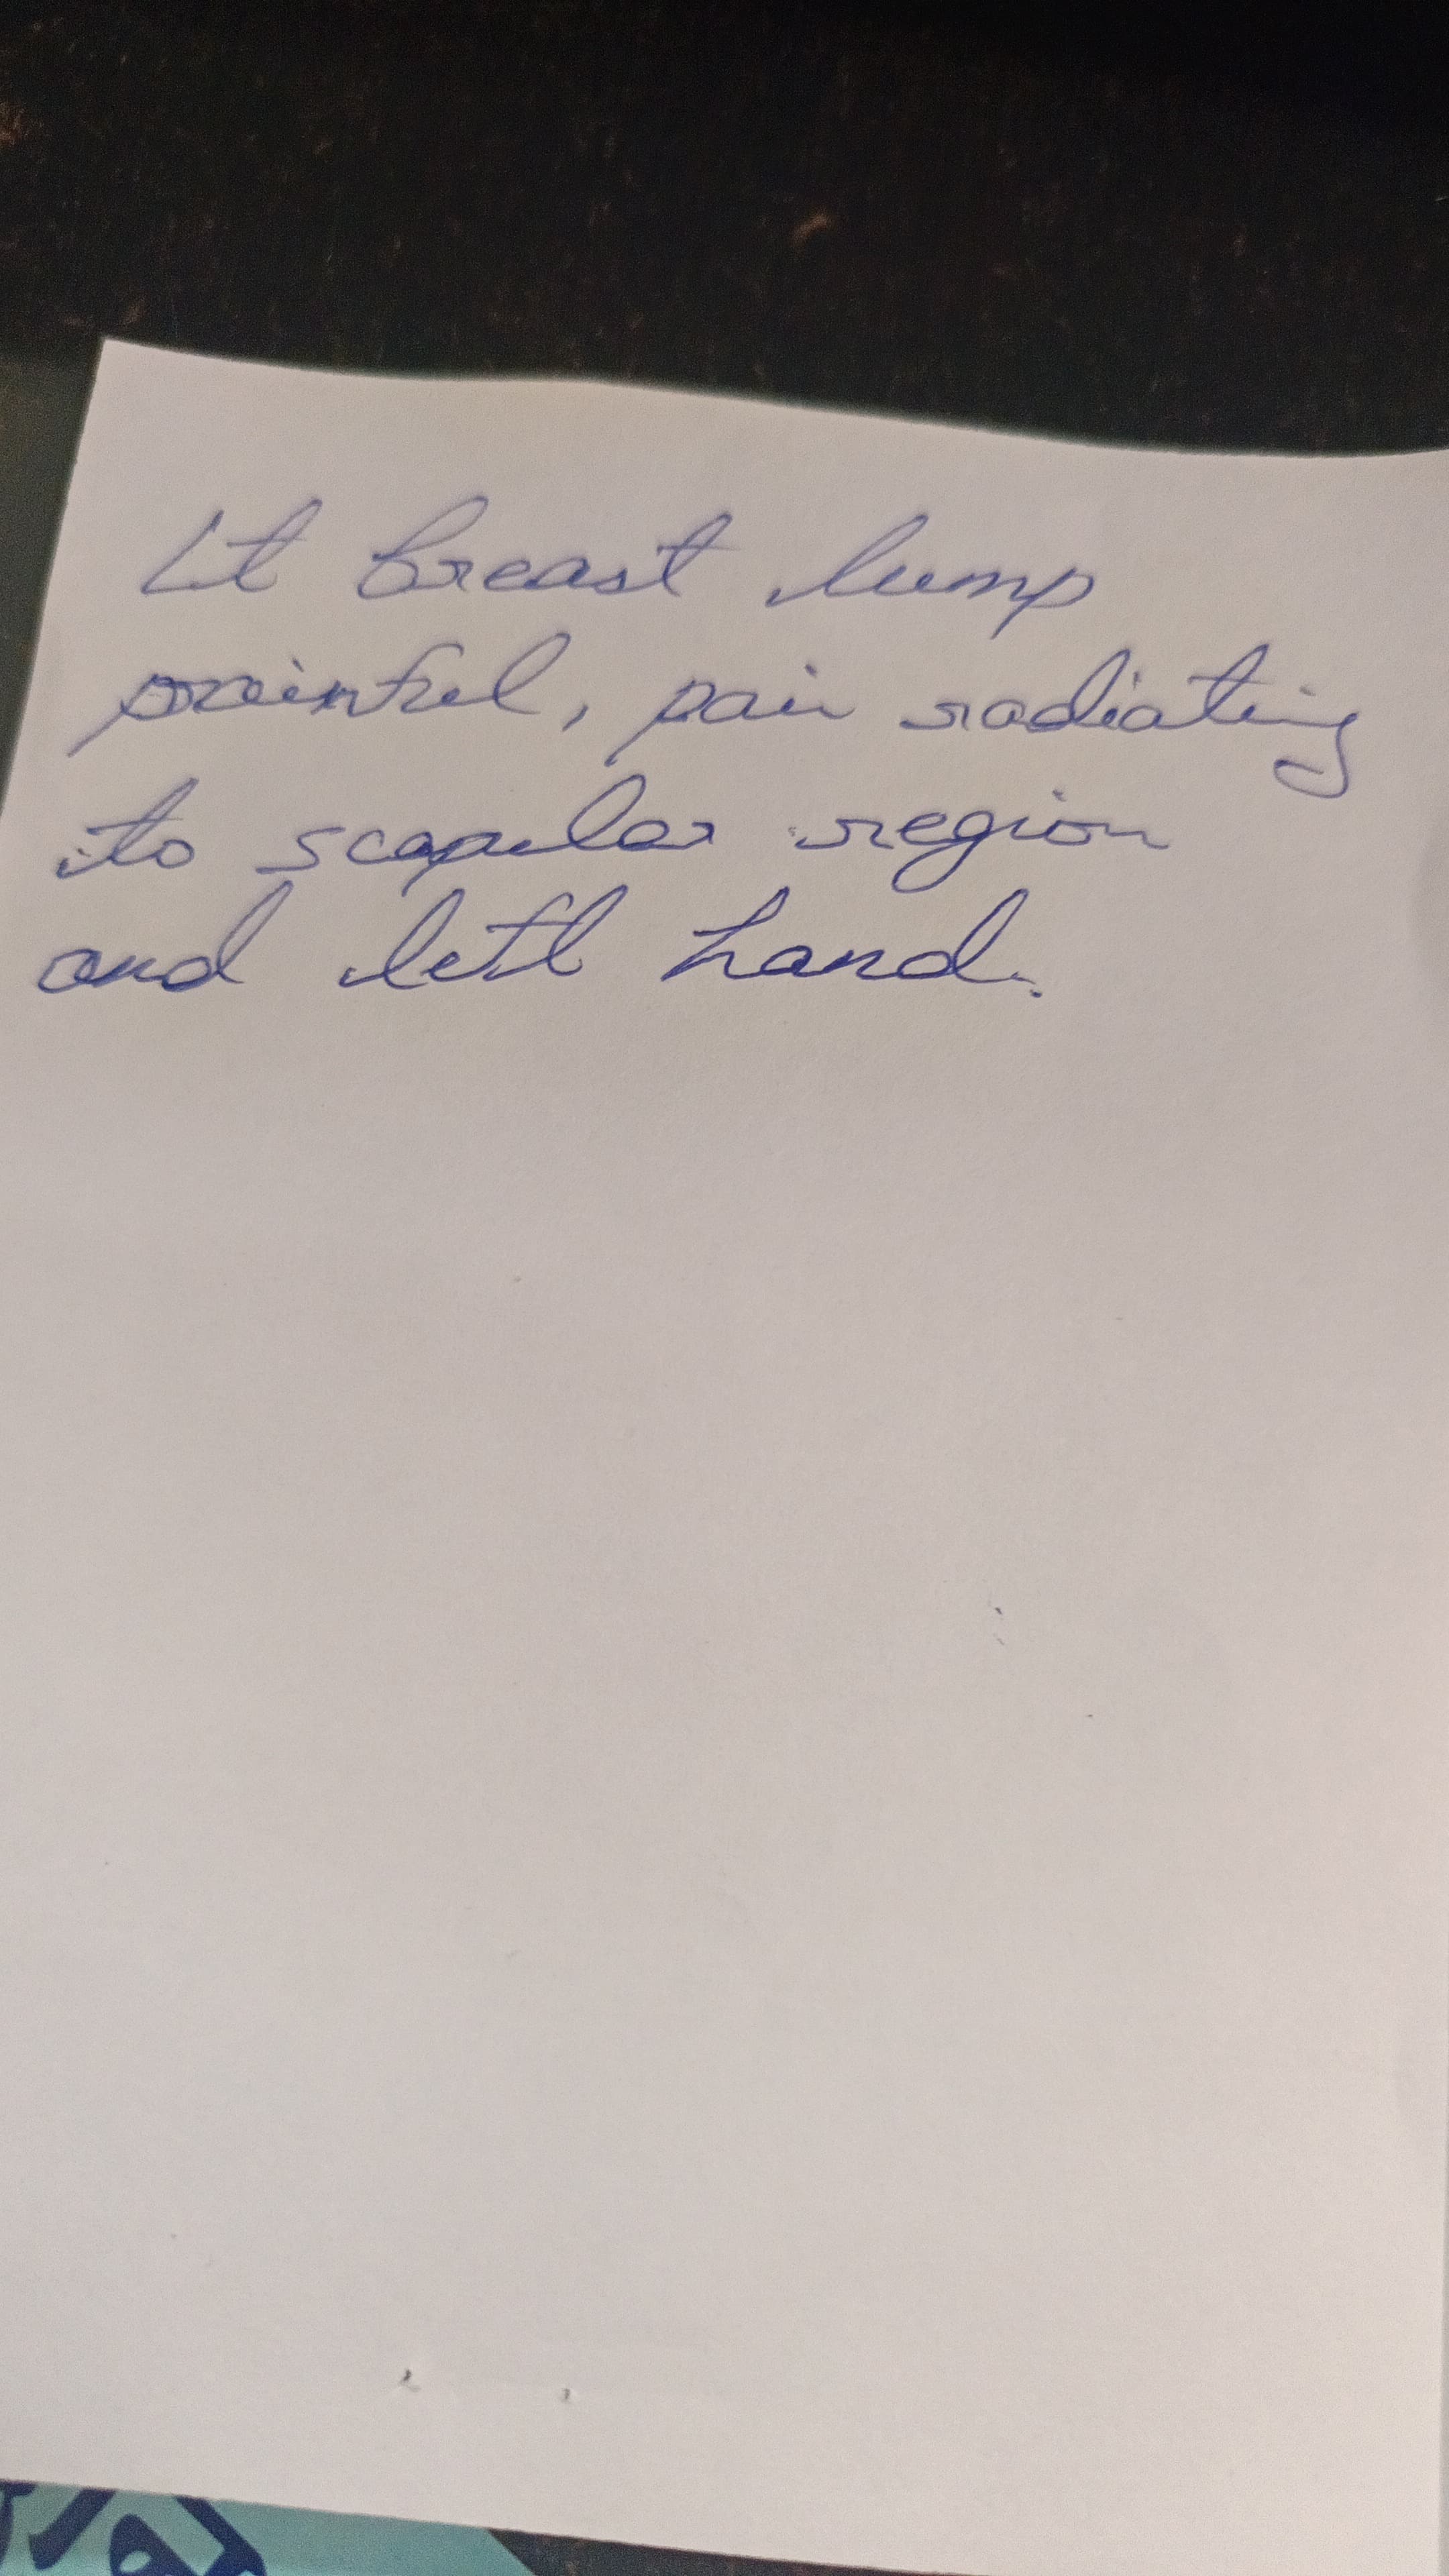 Lt breast lump
painful, pain radiating
to scapular region
and left hand.